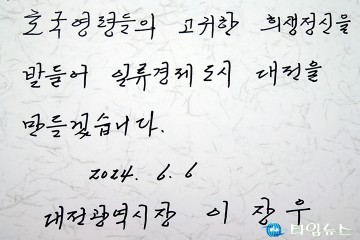 호국영령들의 고귀한 희생정신을
받들어 일류경제도시 대전을
만들겠습니다.
2024. 6. 6
대전광역시장 이 장 우
타임뉴스